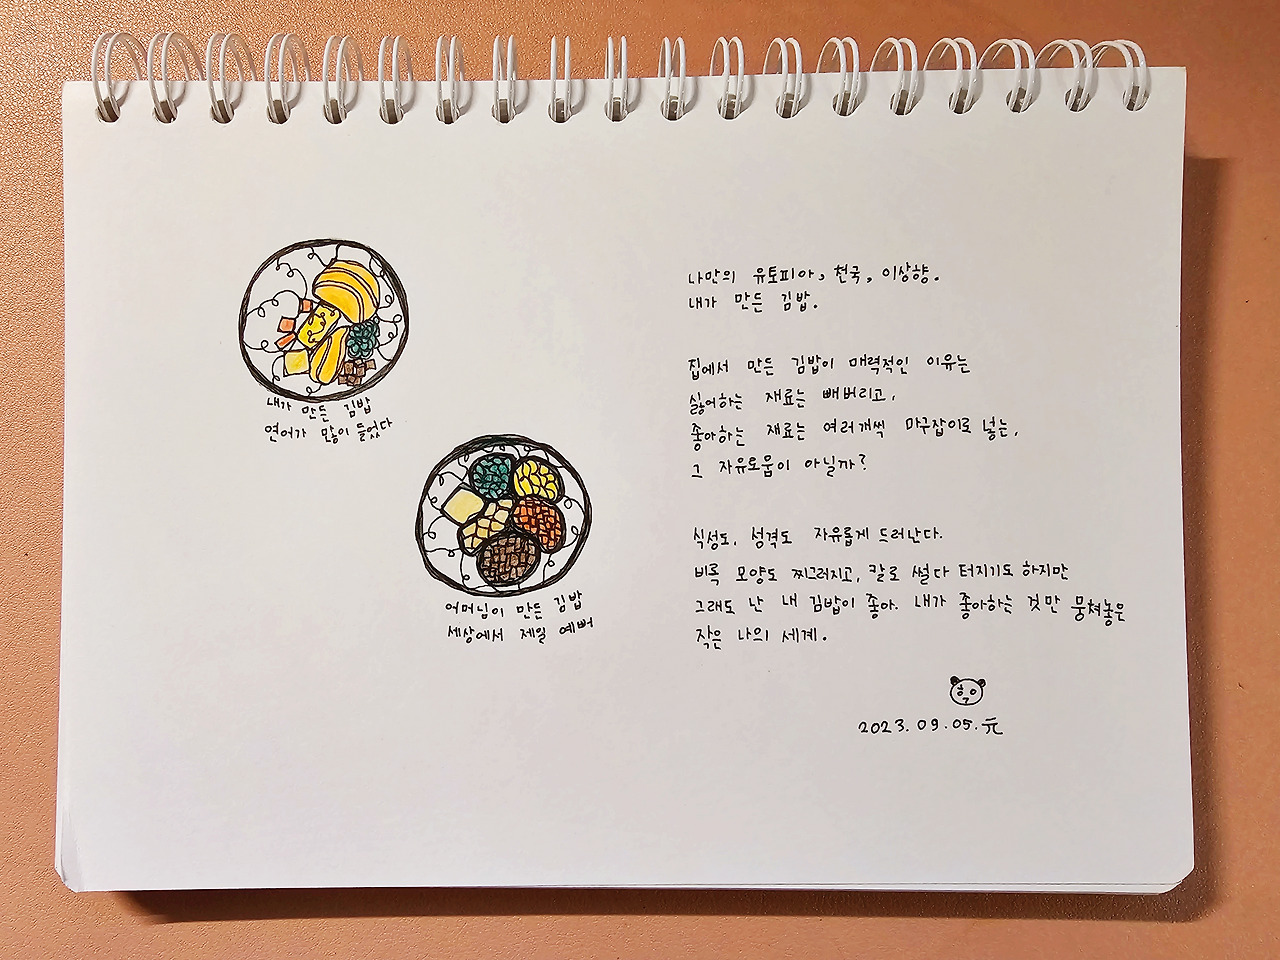 내가 만든 김밥
연어가 많이 들었다
어머님이 만든 김밥
세상에서 제일 예뻐
나만의 유토피아, 천국, 이상향.
내가 만든 김밥.
집에서 만든 김밥이 매력적인 이유는
싫어하는 재료는 빼버리고,
좋아하는 재료는 여러개씩 마구잡이로 넣는,
그 자유로움이 아닐까?
식성도, 성격도 자유롭게 드러난다.
비록 모양도 찌그러지고, 칼로 썰다 터지기도 하지만
그래도 난 내 김밥이 좋아. 내가 좋아하는 것만 뭉쳐놓은
작은 나의 세계.
2023.09.05.元